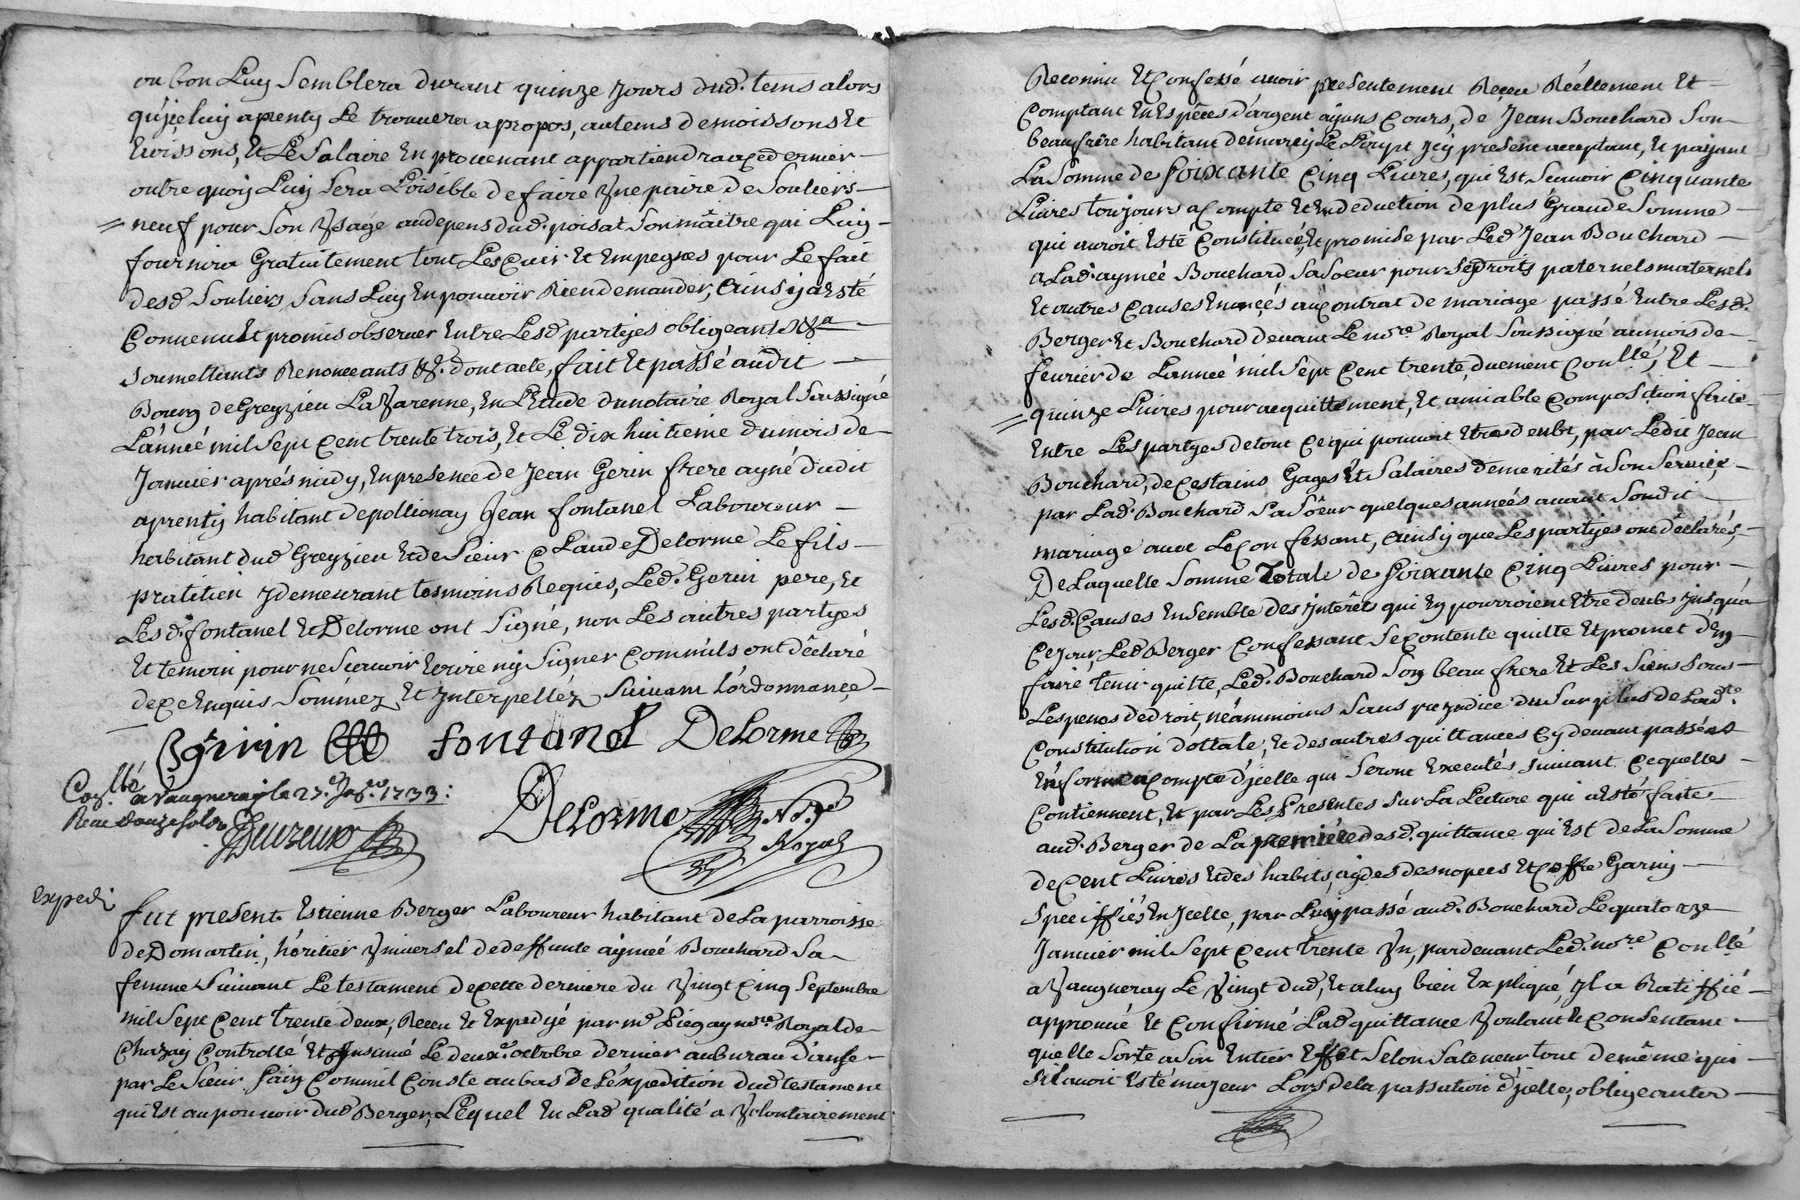 ou bon Luy Semblera durant quinze Jours dud. tems alors
qu'jceluy aprenty Le trouuera apropos, autems demoissons Et
Et Le Salaire En prouenant appartiendra aud dernier
outre quoy Luy Sera Loisible de faire Vne paire de Souliers
neuf pour Son Vsage audepens dud. poisat Son maître qui Luy
fournira Gratuitement tout Les Cuir Et Empegnes pour Le fait
desd. Souliers, Sans Luy En pouuoir Rien demander, Ainsy a Esté
Conuenu Et promis obseruer Entre Lesd parties obligeants &a
Soumettants Renonceants &a. dont acte, fait Et passé audit
Bourg de Greyzieu La Varenne, En L'Etude du notaire Royal Soussigné
L'année mil Sept Cent trente trois, Et Le dix huitieme du mois de
Januier aprés midy, En presence de Jean Gerin frere ayné dudit
aprenty habitant de pollionay Jean fontanel Laboureur
habitant dud Greyzieu Et de Sieur Claude Delorme Le fils
pratitien y demeurant tesmoins Requis, Led. Gerin pere, Et
Lesd. fontanel Et Delorme ont Signé, non Les autres partyes
Et temoin pour ne Scauoir Ecrire ny Signer Comm'ils ont déclaré
de ce Enquis Sommez Et Interpellez Suiuant L'ordonnance
girin fontanel DeLorme
Con.llé a Vaugneray le 27.e Ja.er 1733:
Receu douze sols
DeLorme N.re
Royal
Expedi
fut present Estienne Berger Laboureur habitant de La parroisse
de Domartin, héritier Vniuersel de deffunte aymeé Bouchard Sa
femme Suiuant Le testament de cette derniere du Vingt Cinq Septembre
mil Sept Cent trente deux, Receu Et Expedyé par me Liegay nore Royal de
Chazay Controllé Et Insinué Le deuxe. octobre dernier au bureau d'anse
par Le Sieur Commil Conste au bas de L'éxpedition dud testament
qui Est au pouuoir dud Berger, Lequel En Lad qualité a Volontairement
Reconnu Et Confessé auoir presentement Receu Réellement Et
Comptant En Espéces d'argent ayans Cours, de Jean Bouchard Son
beaufrére habitant de marcy Le Loup Jcy présent acceptant, Et payant
La Somme de Soixante Cinq Liures, qui Est Scauoir Cinquante
Liures toujours a Compte Et En deduction de plus Grande Somme
qui auroit Esté Constituée, Et promise par Led Jean Bouchard
a Lad. aymeé Bouchard Sa Soeur pour Ses droits paternels maternels
Et autres Causes au Contrat de mariage passé Entre Lesd.
Berger Et Bouchard deuant Le nore Royal Soussigné au mois de
feurier de L'année mil Sept Cent trente, duement Con.llé, Et
quinze Liures pour acquittement, Et amiable Composition faite
Entre Les partyes de tout Ce qui pouuoit Etre deub, par Ledit Jean
Bouchard, de Certains Gages Et Salaires demerités à Son Seruice
par Lad. Bouchard Sa Sœur quelques années auant Sondit
mariage auec Le Confessant, Ainsy que Les partyes ont declarés,
De Laquelle Somme Totale de Soixante Cinq Liures pour
Lesd. Causes Ensemble des Jnterêts qui En pourroient Etre deubs Jusqu'a
Ce jour, Led Berger Confessant Se Contente quitte Et promet d'En
faire tenir quitte, Led. Bouchard Son beau frere Et Les Siens Sous
Les penes de droit, néammoins Sans prejudice du Surplus de Ladte
Constitution dottale, Et des autres quittances Cy deuant passées
En forme a Compte d'jcelle qui Seront Executés Suiuant Ce qu'elles
Contiennent, Et par Les Presentes Sur La Lecture qui a Esté faite
aud. Berger de La premiére desd. quittance qui Est de La Somme
de Cent Liures Et des habits, aydes des nopces Et Coffre Garny
Speciffiés En Jcelle, par Luy passé aud. Bouchard Le quatorze
Januier mil Sept Cent trente Vn, pardeuant Led. nore Con.llé
a Vaugneray Le Vingt dud, Et a luy bien Expliqué, Jl a Ratiffié
approuué Et Confirmé Lad quittance Voulant Et Consentant
quelle Sorte a Son Entier Effet Selon Sa teneur tout de même qui
S'il auoit Esté majeur Lors de La passation d'jcelle, obligeant